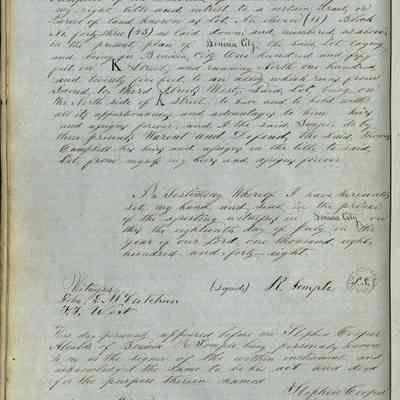 my right title and intrest to a certain tract or
Parcel of land known as Lot No eleven (11) Block
No forty three (43) as laid down and numbered as above
in the present plan of Benicia City. the said Lot laying
and being in Benicia City One hundred and fifty
feet on K Street, and running North one hundred
and twenty five feet to an alley which runs from
Second to third Streets West, Said Lot being on
the North side of K Street, to have and to hold with
all its appurtenances and advantages to him heirs
and assigns forever, and I the said Semple do by
these presents Warent and Defend, the said Thomas
Campbell his heirs and assigns in the title to said
Lot, from myself my heirs and assigns forever
In testimony Whereof I have hereunto
set my hand and seal in the presence
of the attesting witnesses in Benicia City on
this the eighteenth day of July in the
year of our Lord, one thousand eight
hundred and forty-eight.
Witness (signed) R. Semple L.S.
John S. McCutchen
West
This day personally appeared before me Stephen Cooper
Alcalde of Benicia R Semple being personally known
to me as the signer of the within instrument and
acknowledged the same to be his act and deed
for the purpose therein named
Stephen Cooper